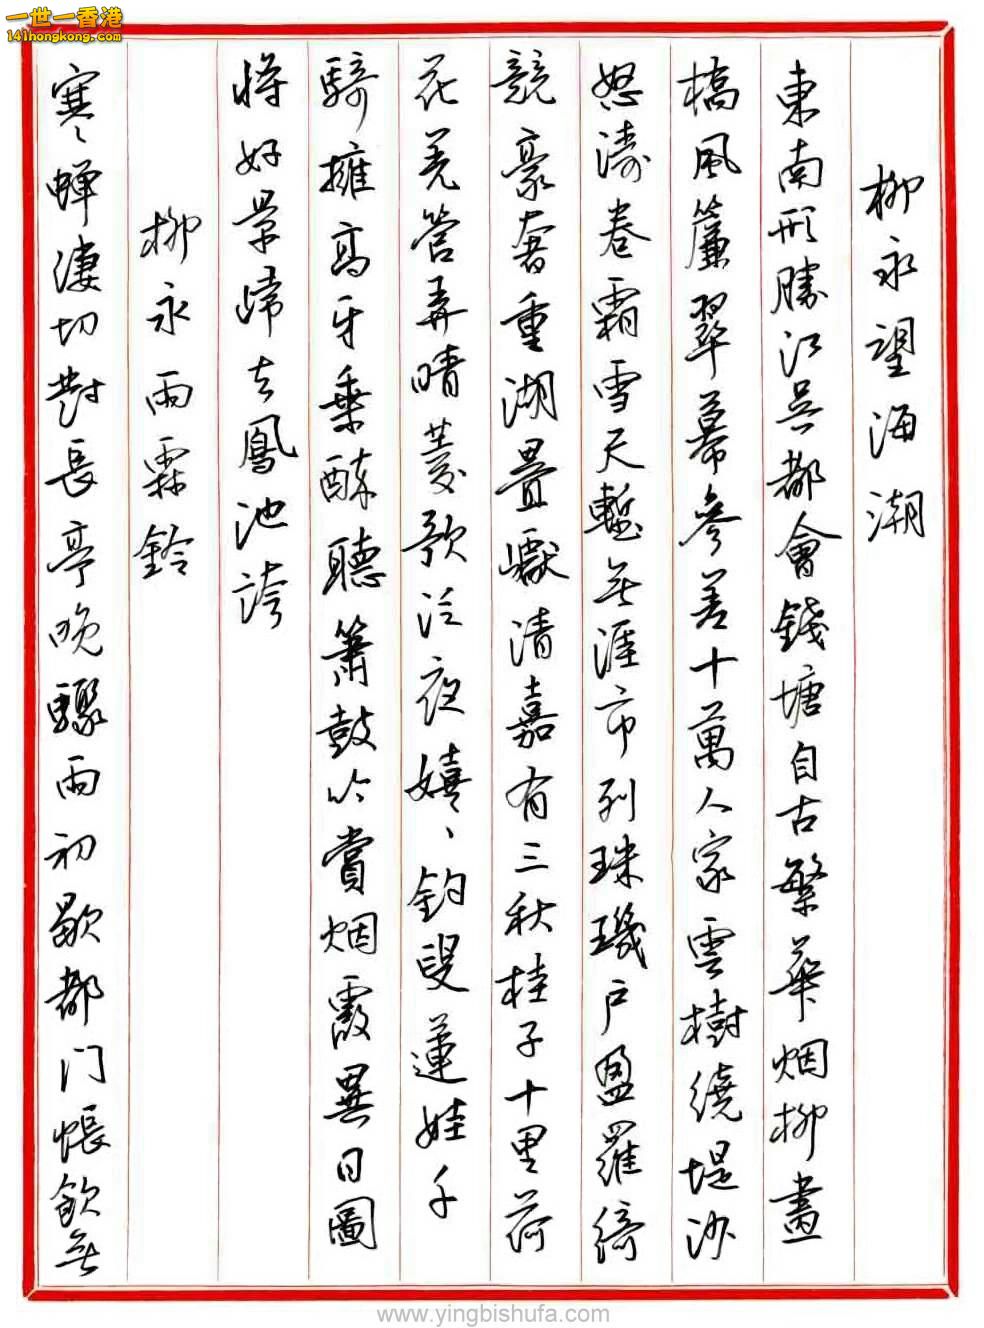 一世一香港
141hongkong.com
柳永望海潮
東南形勝江吳都會錢塘自古繁華烟柳畫
橋風簾翠幕參差十萬人家雲樹繞堤沙
怒濤卷霜雪天塹無涯市列珠璣戶盈羅綺
競豪奢重湖疊巘清嘉有三秋桂子十里荷
花羌管弄晴菱歌泛夜嬉〻釣叟蓮娃千
騎擁高牙乘醉聽簫鼓吟賞烟霞異日圖
將好景歸去鳳池誇
柳永雨霖鈴
寒〻蟬淒切對長亭晚驟雨初歇都门帳飲無
www.yingbishufa.com